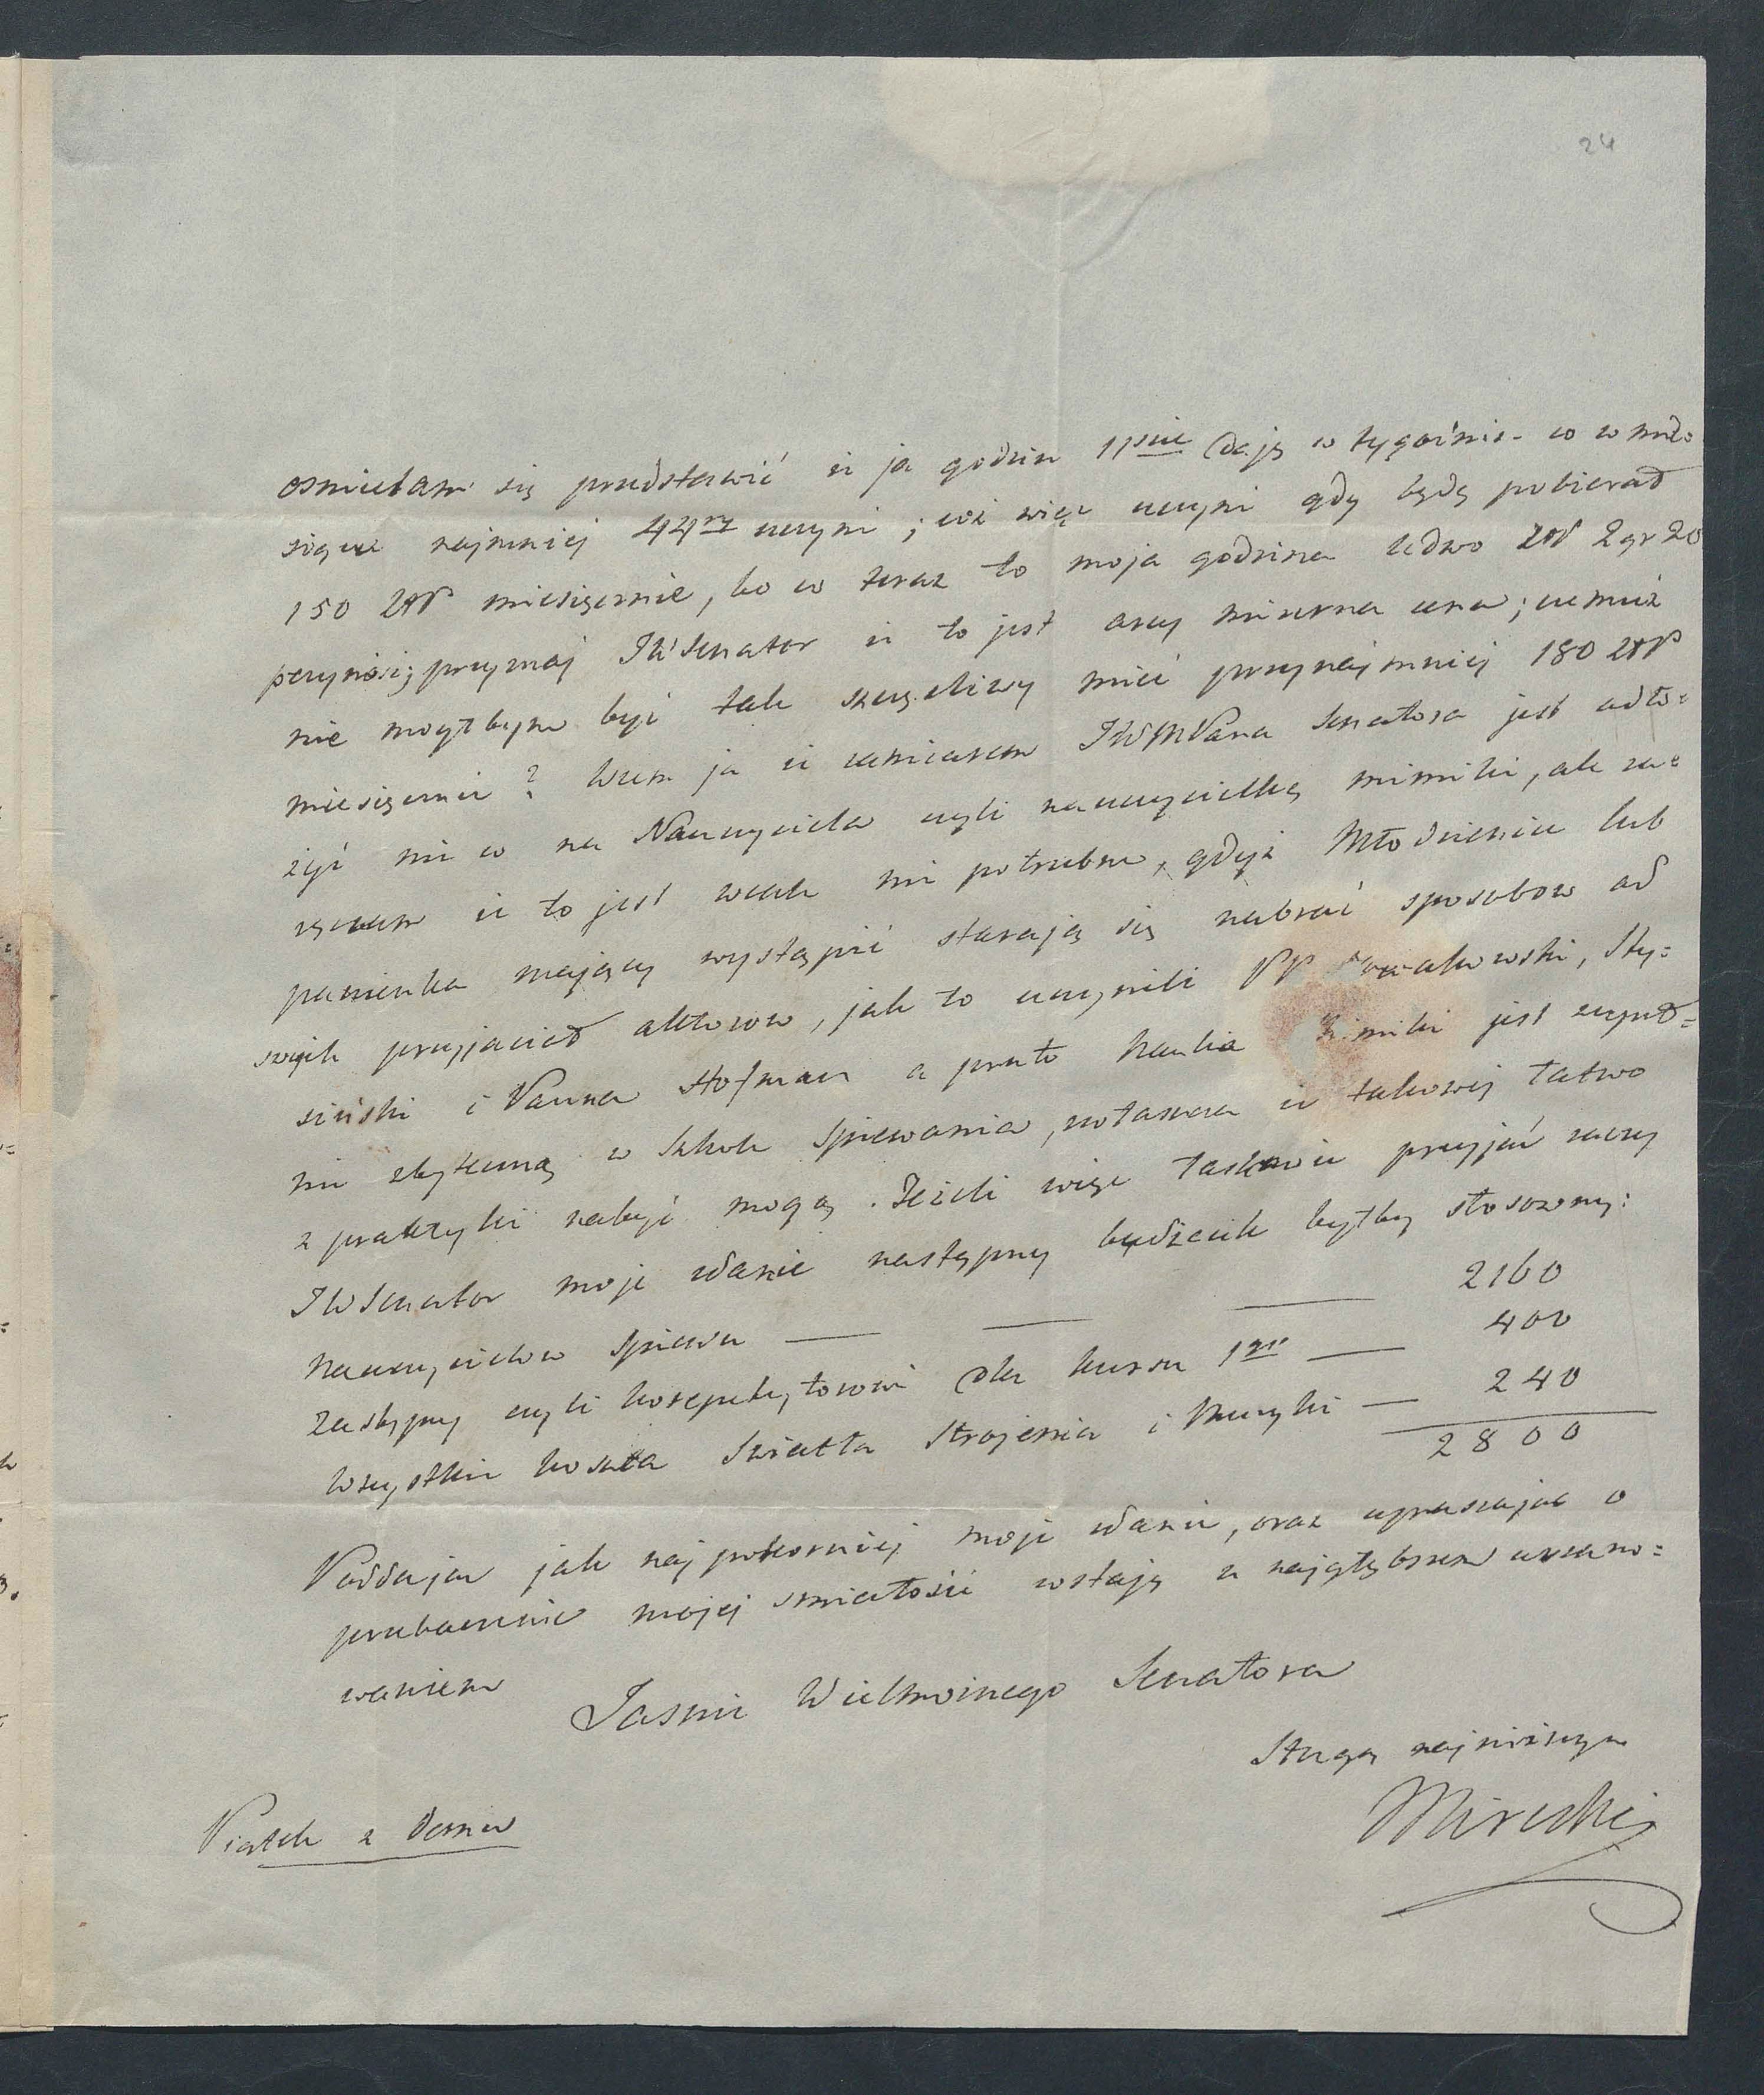 24
osmielam się przedstawić iż ja godzin 11ście daję w tygodniu co w mie-
siącu najmniej 44ry uczyni; cóż więc uczyni gdy będę pobierał
150 złp miesięcznie, bo co teraz to moja godzina ledwo złp 2 gr 20
przynosi; przyznaj JW Senator iż to jest arcy mizerna cena; czemuż
nie mogłbym być tak szczęśliwy mieć przynajmniej 180 złp
miesięcznie? Wiem ja iż zamiarem JWMPana Senatora jest odło=
żyć nieco na Nauczyciela czyli nauczycielkę mimiki, ale za=
ręczam iż to jest wcale nie potrzebne, gdyż Młodzieniec lub
panienka mający wystąpić starają się nabrać sposobow od
swych przyjaciół aktorow, jak to uczynili PP Nowakowski, Sty=
siński i Panna Hofman a przeto Nauka Mimiki jest zupeł=
nie zbyteczną w Szkole Spiewania, zwłaszcza iż takowej łatwo
z praktyki nabyć mogą. Jeżeli więc łaskawie przyjąć raczy
JW Senator moje zdanie następny budżecik byłby stosowny:
Nauczycielow Spiewu — — — 2160
Zastępcy czyli korepetytorowi dla kursu 1go — 400
Wszystkie koszta Swiatła Strojenia i Muzyki — 240
2800
Poddając jak najpokorniej moje zdanie, oraz upraszając o
przebaczenie mojej smiałości zostaję z najgłębszem uszano=
waniem
Jasnie Wielmożnego Senatora
Sługą najniższym
Mirecki
Piątek z Domu